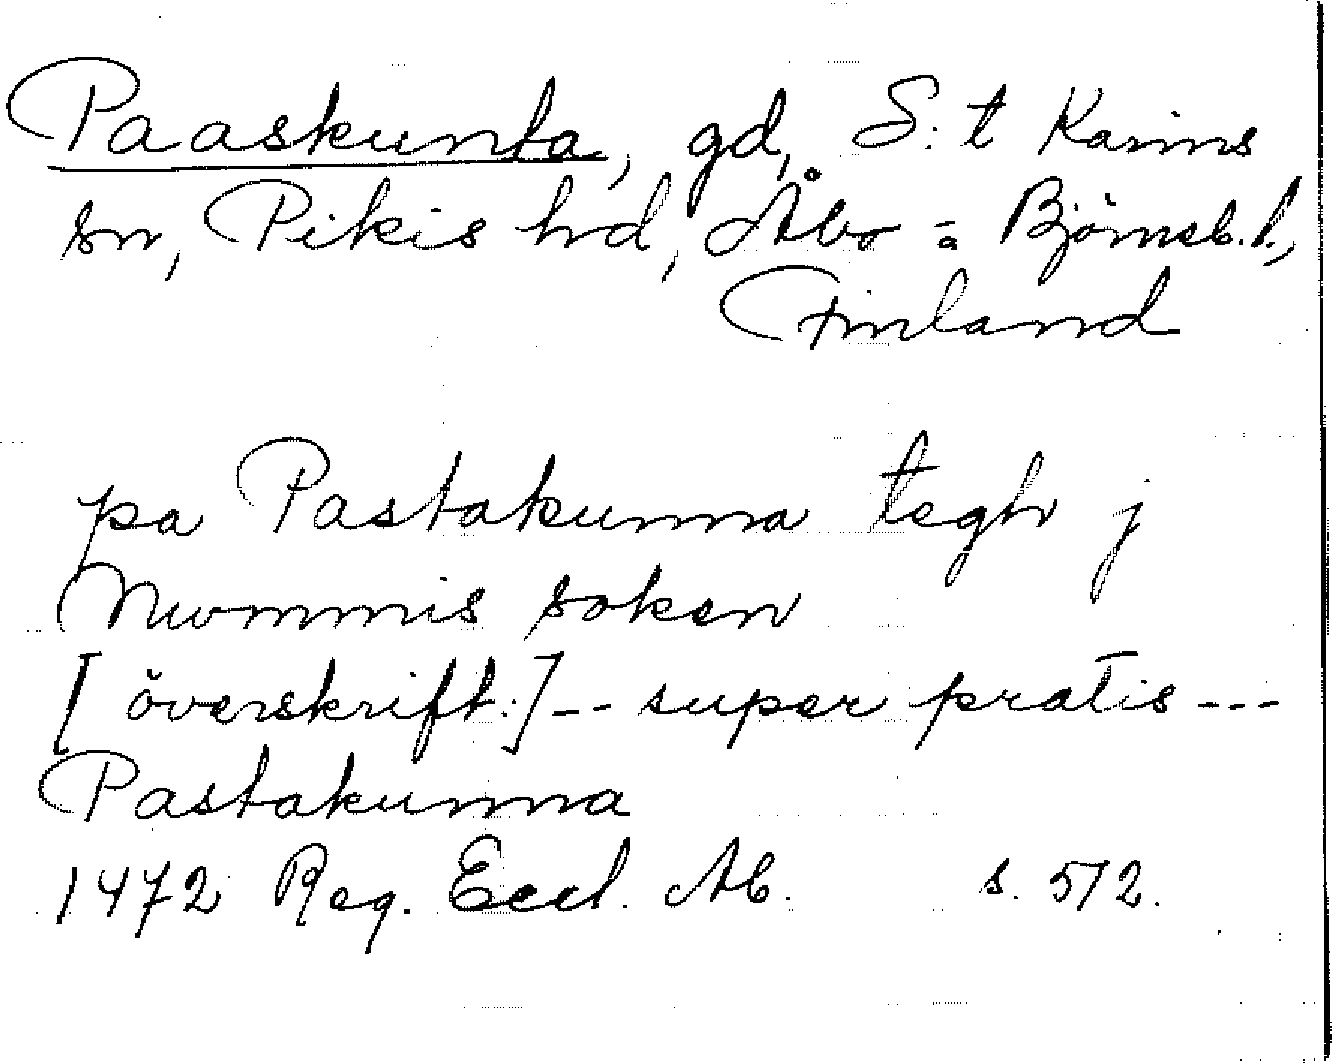 Paaskunta, gd, S:t Karins
sn, Pikis hd, Åbo = Björneb. l.,
Finland
pa Pastakunna tegh j
Nummis soken
[överskrift:] -- super pratis ---
Pastakunna
1472 Reg. Eccl. Ab. s. 572.